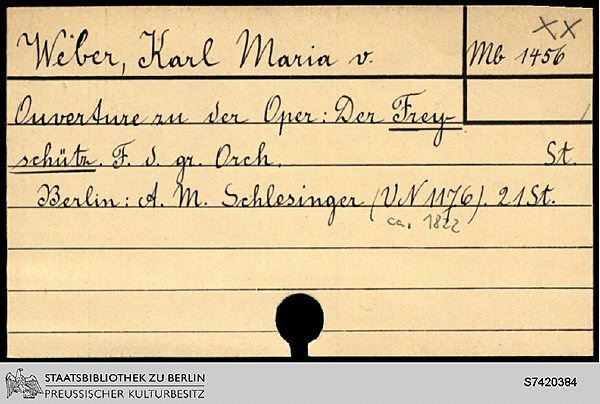 XX
Weber, Karl Maria v.
Mb 1456
Ouverture zu der Oper: Der Frey-
schütz. F. d. gr. Orch. St.
Berlin: A. M. Schlesinger (VN 1176). 21 St.
ca. 1822
STAATSBIBLIOTHEK ZU BERLIN
PREUSSISCHER KULTURBESITZ
S7420384